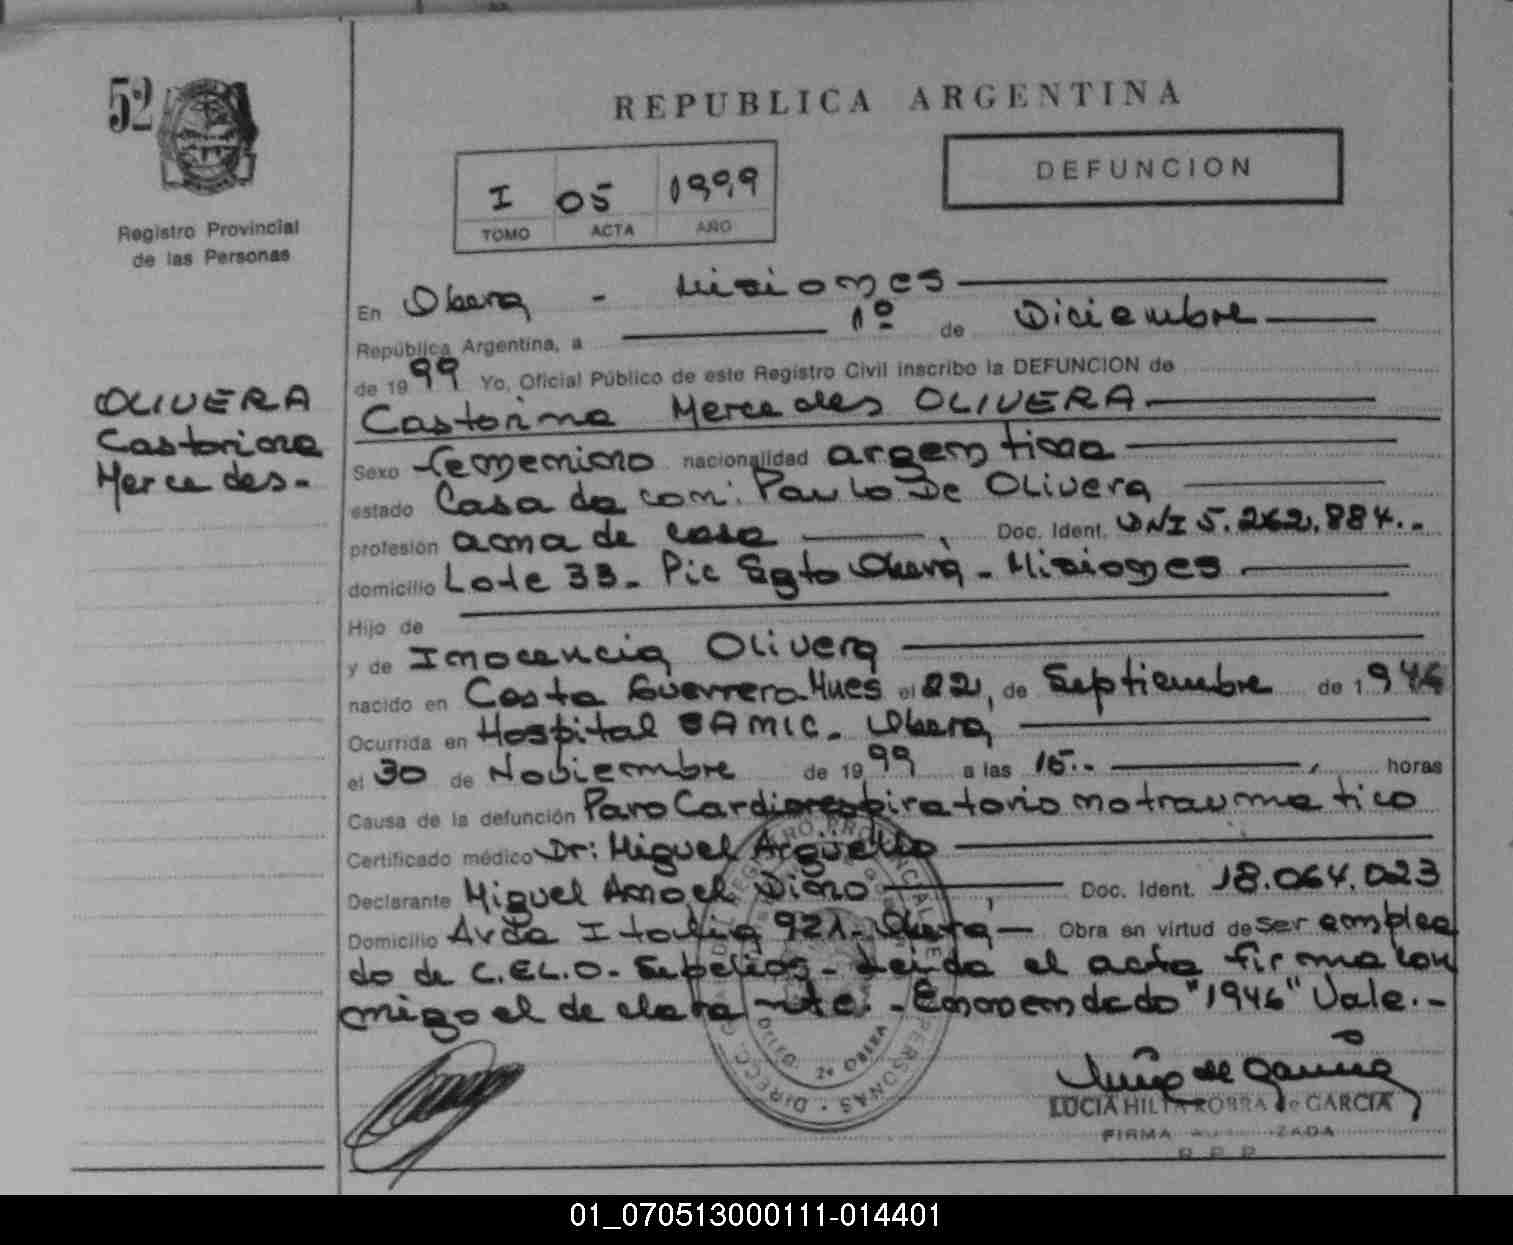 52
REPUBLICA ARGENTINA
DEFUNCION
I 05 1999
TOMO ACTA AÑO
Registro Provincial
de las Personas
OLIVERA
Castorina
Mercedes.-
En Oberá - Misiones
República Argentina, a 1º de Diciembre
de 1999 Yo, Oficial Público de este Registro Civil inscribo la DEFUNCION de
Castorina Mercedes OLIVERA
Sexo femenino nacionalidad argentina
estado Casada con: Paulo De Olivera
profesión ama de casa, Doc. Ident. DNI 5.262.884.-
domicilio Lote 33- Pic Sgto Oberá - Misiones
Hijo de
y de Inocencia Olivera
nacido en Costa Guerrero Mnes el 22, de Septiembre de 1946
Ocurrida en Hospital SAMIC. Oberá
el 30 de Noviembre de 1999 a las 15.- horas
Causa de la defunción Paro Cardiorespiratorio no traumatico
Certificado médico Dr: Miguel Arguello
Declarante Miguel Angel Doc. Ident. 18.064.023
Domicilio Avda Italia 921- Oberá - Obra en virtud de ser emplea
do de C.E.L.O- Sepelios- Leida el acta firma con
migo el declarante.- Enmendado "1946" Vale.-
LUCIA HILDA ROBRA de GARCIA
FIRMA AUTORIZADA
R.P.P.
2ª OBERA
01_070513000111-014401